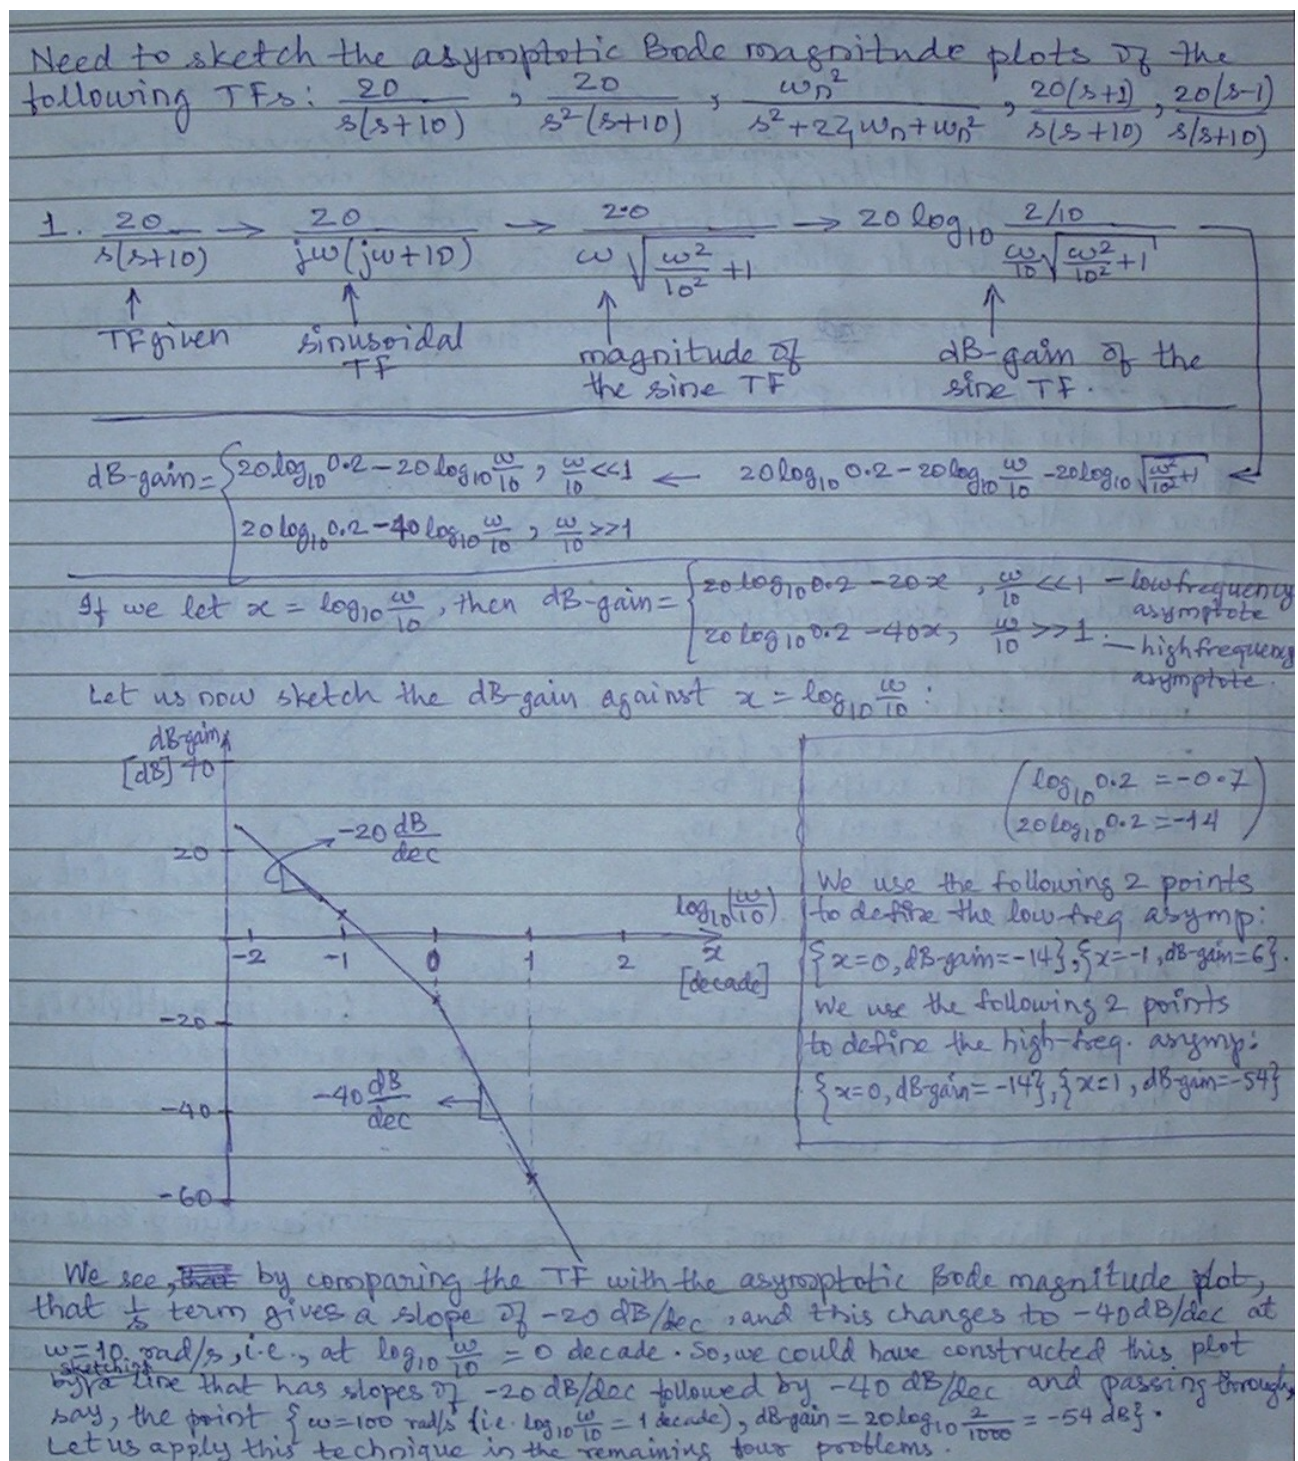 Need to sketch the asymptotic Bode magnitude plots of the
following TFs: 20/(s(s+10)) , 20/(s²(s+10)) , ωn²/(s²+2ζωn+ωn²) , 20(s+1)/(s(s+10)) , 20(s-1)/(s(s+10))
1. 20/(s(s+10)) → 20/(jω(jω+10)) → 2.0/(ω√(ω²/10²+1)) → 20 log₁₀ (2/10)/((ω/10)√(ω²/10²+1))
↑ ↑ ↑ ↑
TF given sinusoidal TF magnitude of the sine TF dB-gain of the sine TF.
dB-gain = { 20 log₁₀ 0.2 - 20 log₁₀ ω/10 , ω/10 <<1 ← 20 log₁₀ 0.2 - 20 log₁₀ ω/10 - 20 log₁₀ √(ω²/10²+1) ←
20 log₁₀ 0.2 - 40 log₁₀ ω/10 , ω/10 >>1
If we let x = log₁₀ ω/10 , then dB-gain = { 20 log₁₀ 0.2 - 20x , ω/10 <<1 - low frequency asymptote
20 log₁₀ 0.2 - 40x, ω/10 >>1. - high frequency asymptote.
Let us now sketch the dB-gain against x = log₁₀ ω/10 :
dB-gain
[dB] 70
-20 dB/dec
20
log₁₀(ω/10)
-2 -1 0 1 2 x
[decade]
-20
-40 dB/dec
-40
-60
(log₁₀ 0.2 = -0.7
20 log₁₀ 0.2 = -14)
We use the following 2 points
to define the low-freq asymp:
{x=0, dB-gain=-14}, {x=-1, dB-gain=6}.
We use the following 2 points
to define the high-freq. asymp:
{x=0, dB-gain=-14}, {x=1, dB-gain=-54}
We see, by comparing the TF with the asymptotic Bode magnitude plot,
that 1/s term gives a slope of -20 dB/dec , and this changes to -40 dB/dec at
ω=10 rad/s, i.e., at log₁₀ ω/10 = 0 decade. So, we could have constructed this plot
by sketching a line that has slopes of -20 dB/dec followed by -40 dB/dec and passing through,
say, the point {ω=100 rad/s (i.e. log₁₀ ω/10 = 1 decade), dB-gain = 20 log₁₀ 2/1000 = -54 dB}.
Let us apply this technique in the remaining four problems.